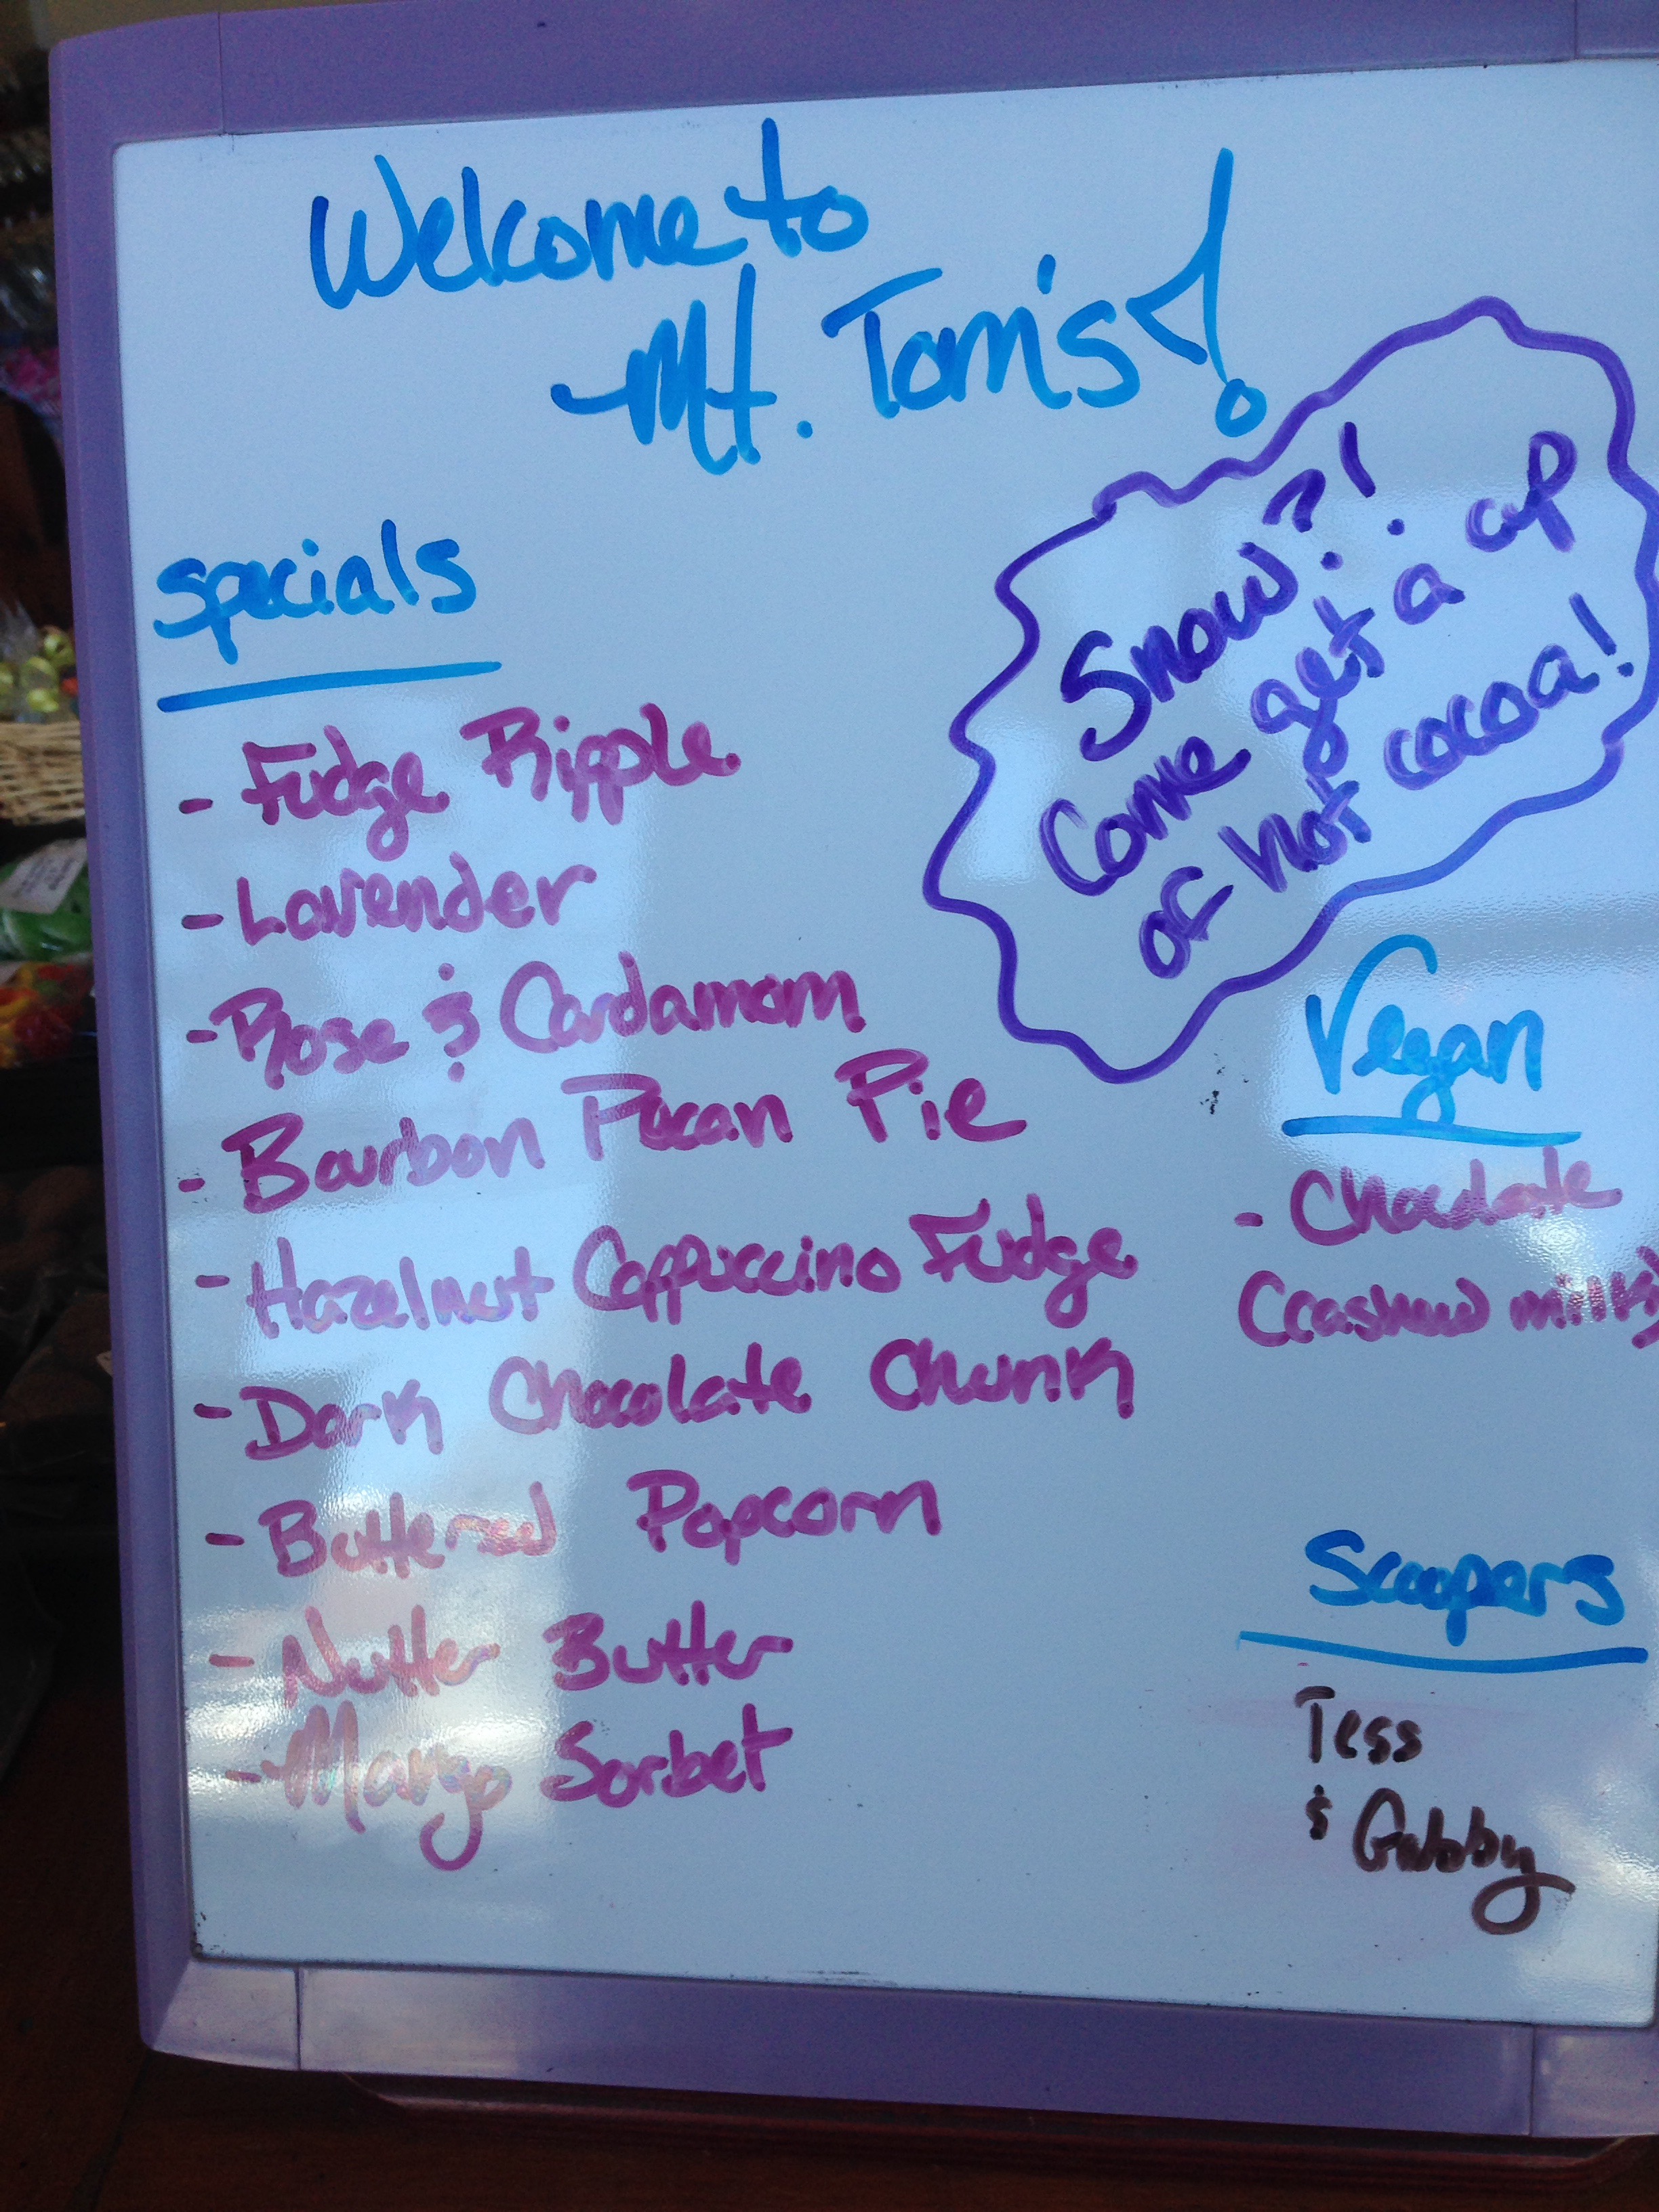 Welcome to
Mt. Tom's!
Snow?!
Come get a cup
of hot cocoa!
Specials
- Fudge Ripple
- Lavender
- Rose & Cardamom
- Bourbon Pecan Pie
- Hazelnut Cappuccino Fudge
- Dark Chocolate Chunk
- Buttered Popcorn
- Nutter Butter
- Mango Sorbet
Vegan
- Chocolate
(cashew milk)
Scoopers
Tess
& Gabby